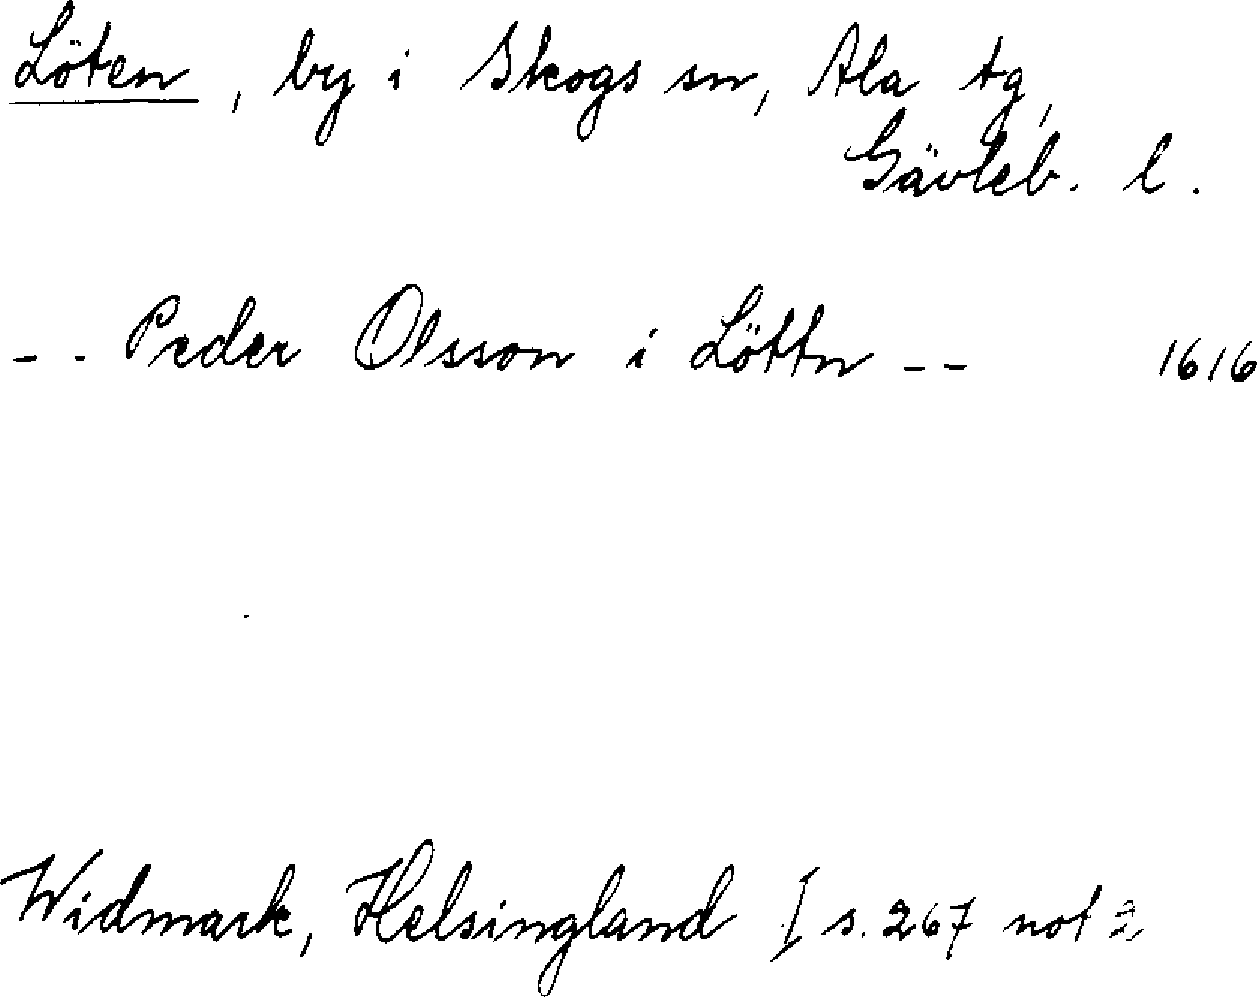 Löten, by i Skogs sn, Ala tg,
Gävleb. l.
-- Peder Olsson i Löttn -- 1616
Widmark, Helsingland I s. 267 not 2